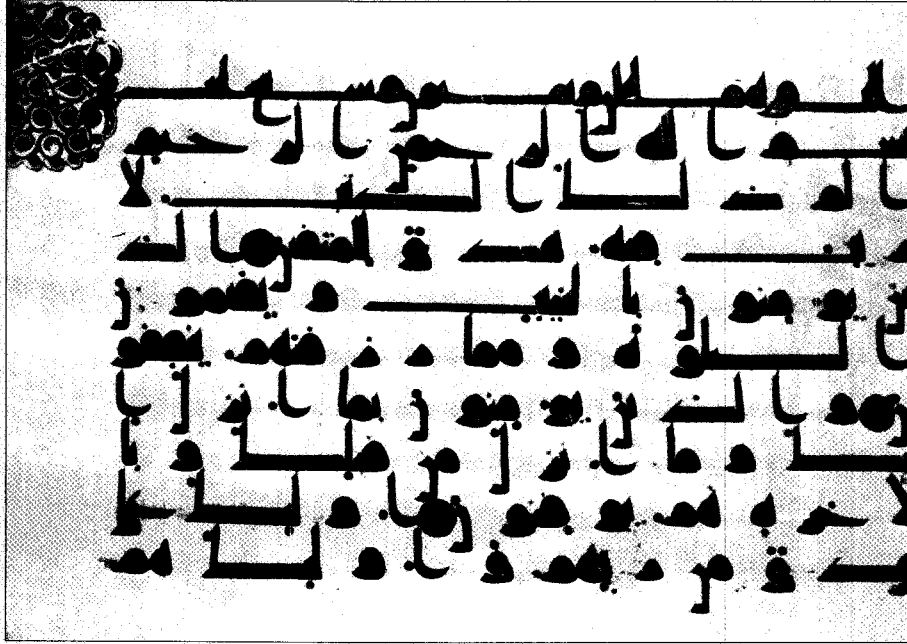 بسم الله الرحمن الرحيم
الم ذلك الكتب لا
ريب فيه هدى للمتقين الذ
ين يؤمنون بالغيب ويقيمون
الصلوة ومما رزقنهم ينفقو
ن والذين يؤمنون بما انزل ا
ليك وما انزل من قبلك وبا
لاخرة هم يوقنون اولئك
على هدى من ربهم واولئك هم